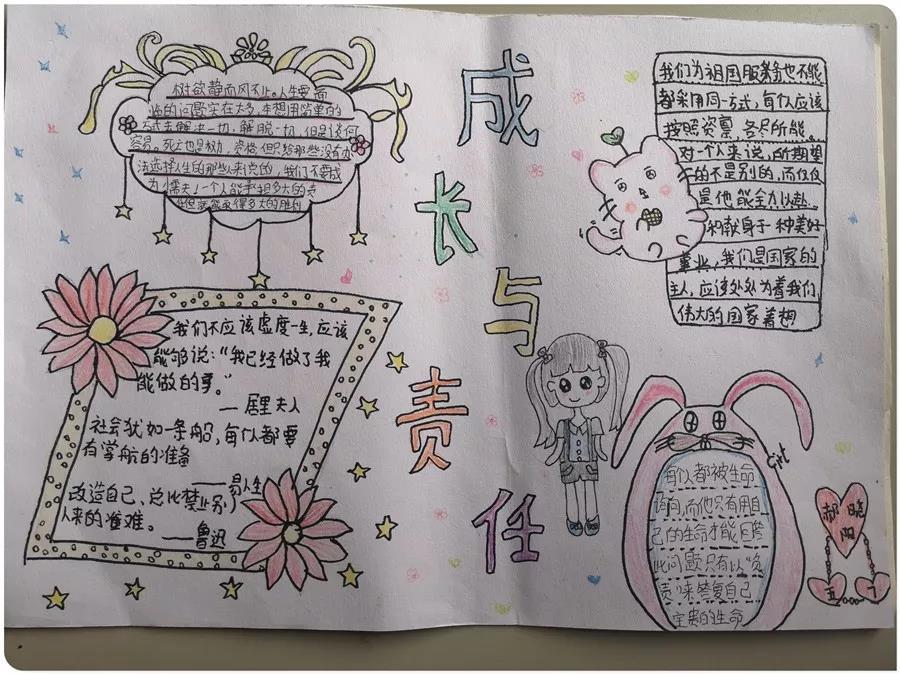 成长与责任
树欲静而风不止。人生要面
临的问题实在太多,本想用简单的
方式去解决一切,解脱一切,但是谈何
容易,死亡也是权力,资格,但只给那些没有办
法选择人生的那些人来说的,我们不要成
为懦夫,一个人能承担多大的责
我们不应该虚度一生,应该
能够说:“我已经做了我
能做的事。”
——居里夫人
社会犹如一条船,每个人都要
有掌舵的准备
——易卜生
改造自己,总比禁止别
人来的难。
——鲁迅
我们为祖国服务,也不能
都采用同一方式,每个人应该
按照资禀,各尽所能。
对一个人来说,所期望
的不是别的,而仅仅
是他能全力以赴
和献身于一种美好
事业,我们是国家的
主人,应该处处为着我们
伟大的国家着想
Girl
每个人都被生命
询问,而他只有用自
己的生命才能回答
此问题,只有以“负
责”来答复自己
宝贵的生命
郝晓阳
五